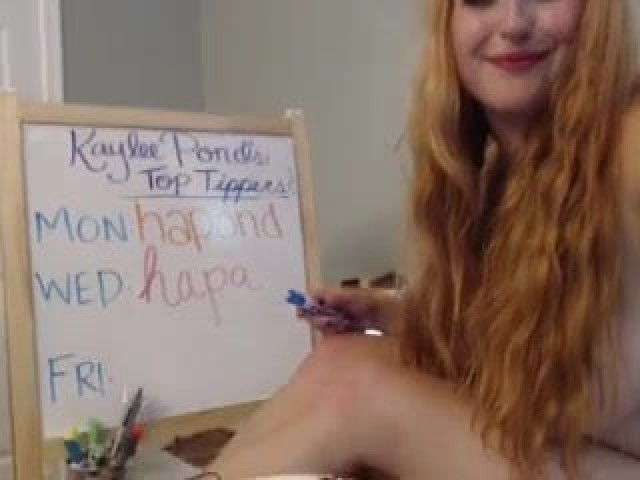 Kaylee Pond's
Top Tippers:
MON hapond
WED. hapa
FRI.